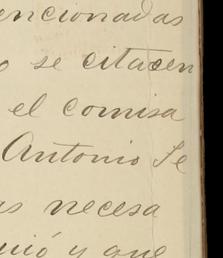 encionadas
o se citacen
el comisa
Antonio Se
as necesa
uió y que